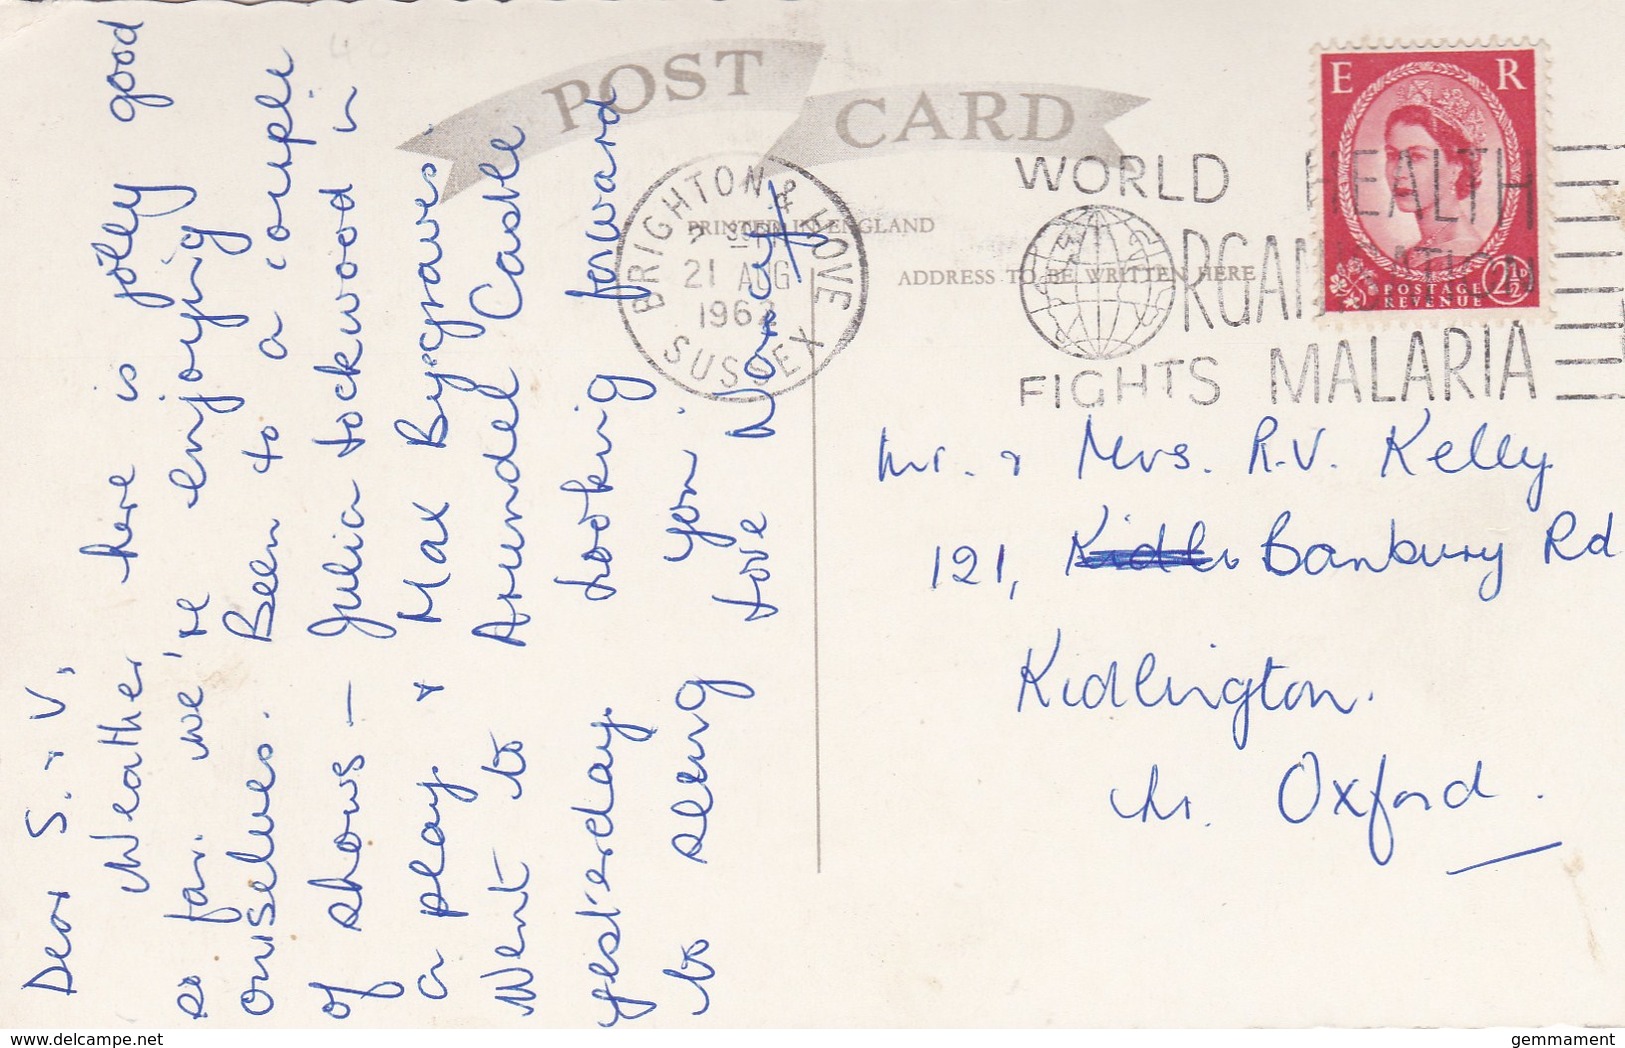 POST CARD
PRINTED IN ENGLAND
ADDRESS TO BE WRITTEN HERE
BRIGHTON & HOVE
SUSSEX
21 AUG
1962
WORLD HEALTH
ORGANISATION
FIGHTS MALARIA
E R
POSTAGE
REVENUE
2½D
Dear S. & V,
Weather here is jolly good
so far. We're enjoying
ourselves. Been to a couple
of shows – Julia Lockwood in
a play & Max Bygraves.
Went to Arundel Castle
yesterday. Looking forward
to seeing you.
Love
Mr. & Mrs. R.V. Kelly
121, Kidli Banbury Rd
Kidlington.
Nr. Oxford.
www.delcampe.net
gemmament